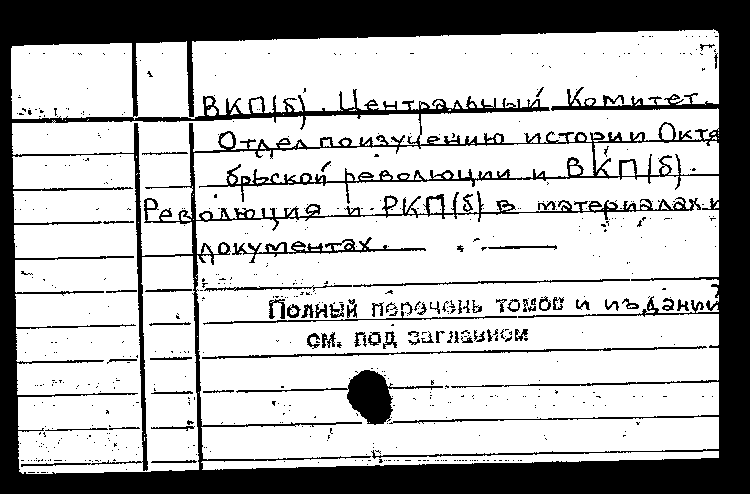 ВКП(б). Центральный Комитет.
Отдел по изучению истории Октя
брьской революции и ВКП(б).
Революция и РКП(б) в материалах и
документах. — . —
Полный перечень томов и изданий
см. под заглавием